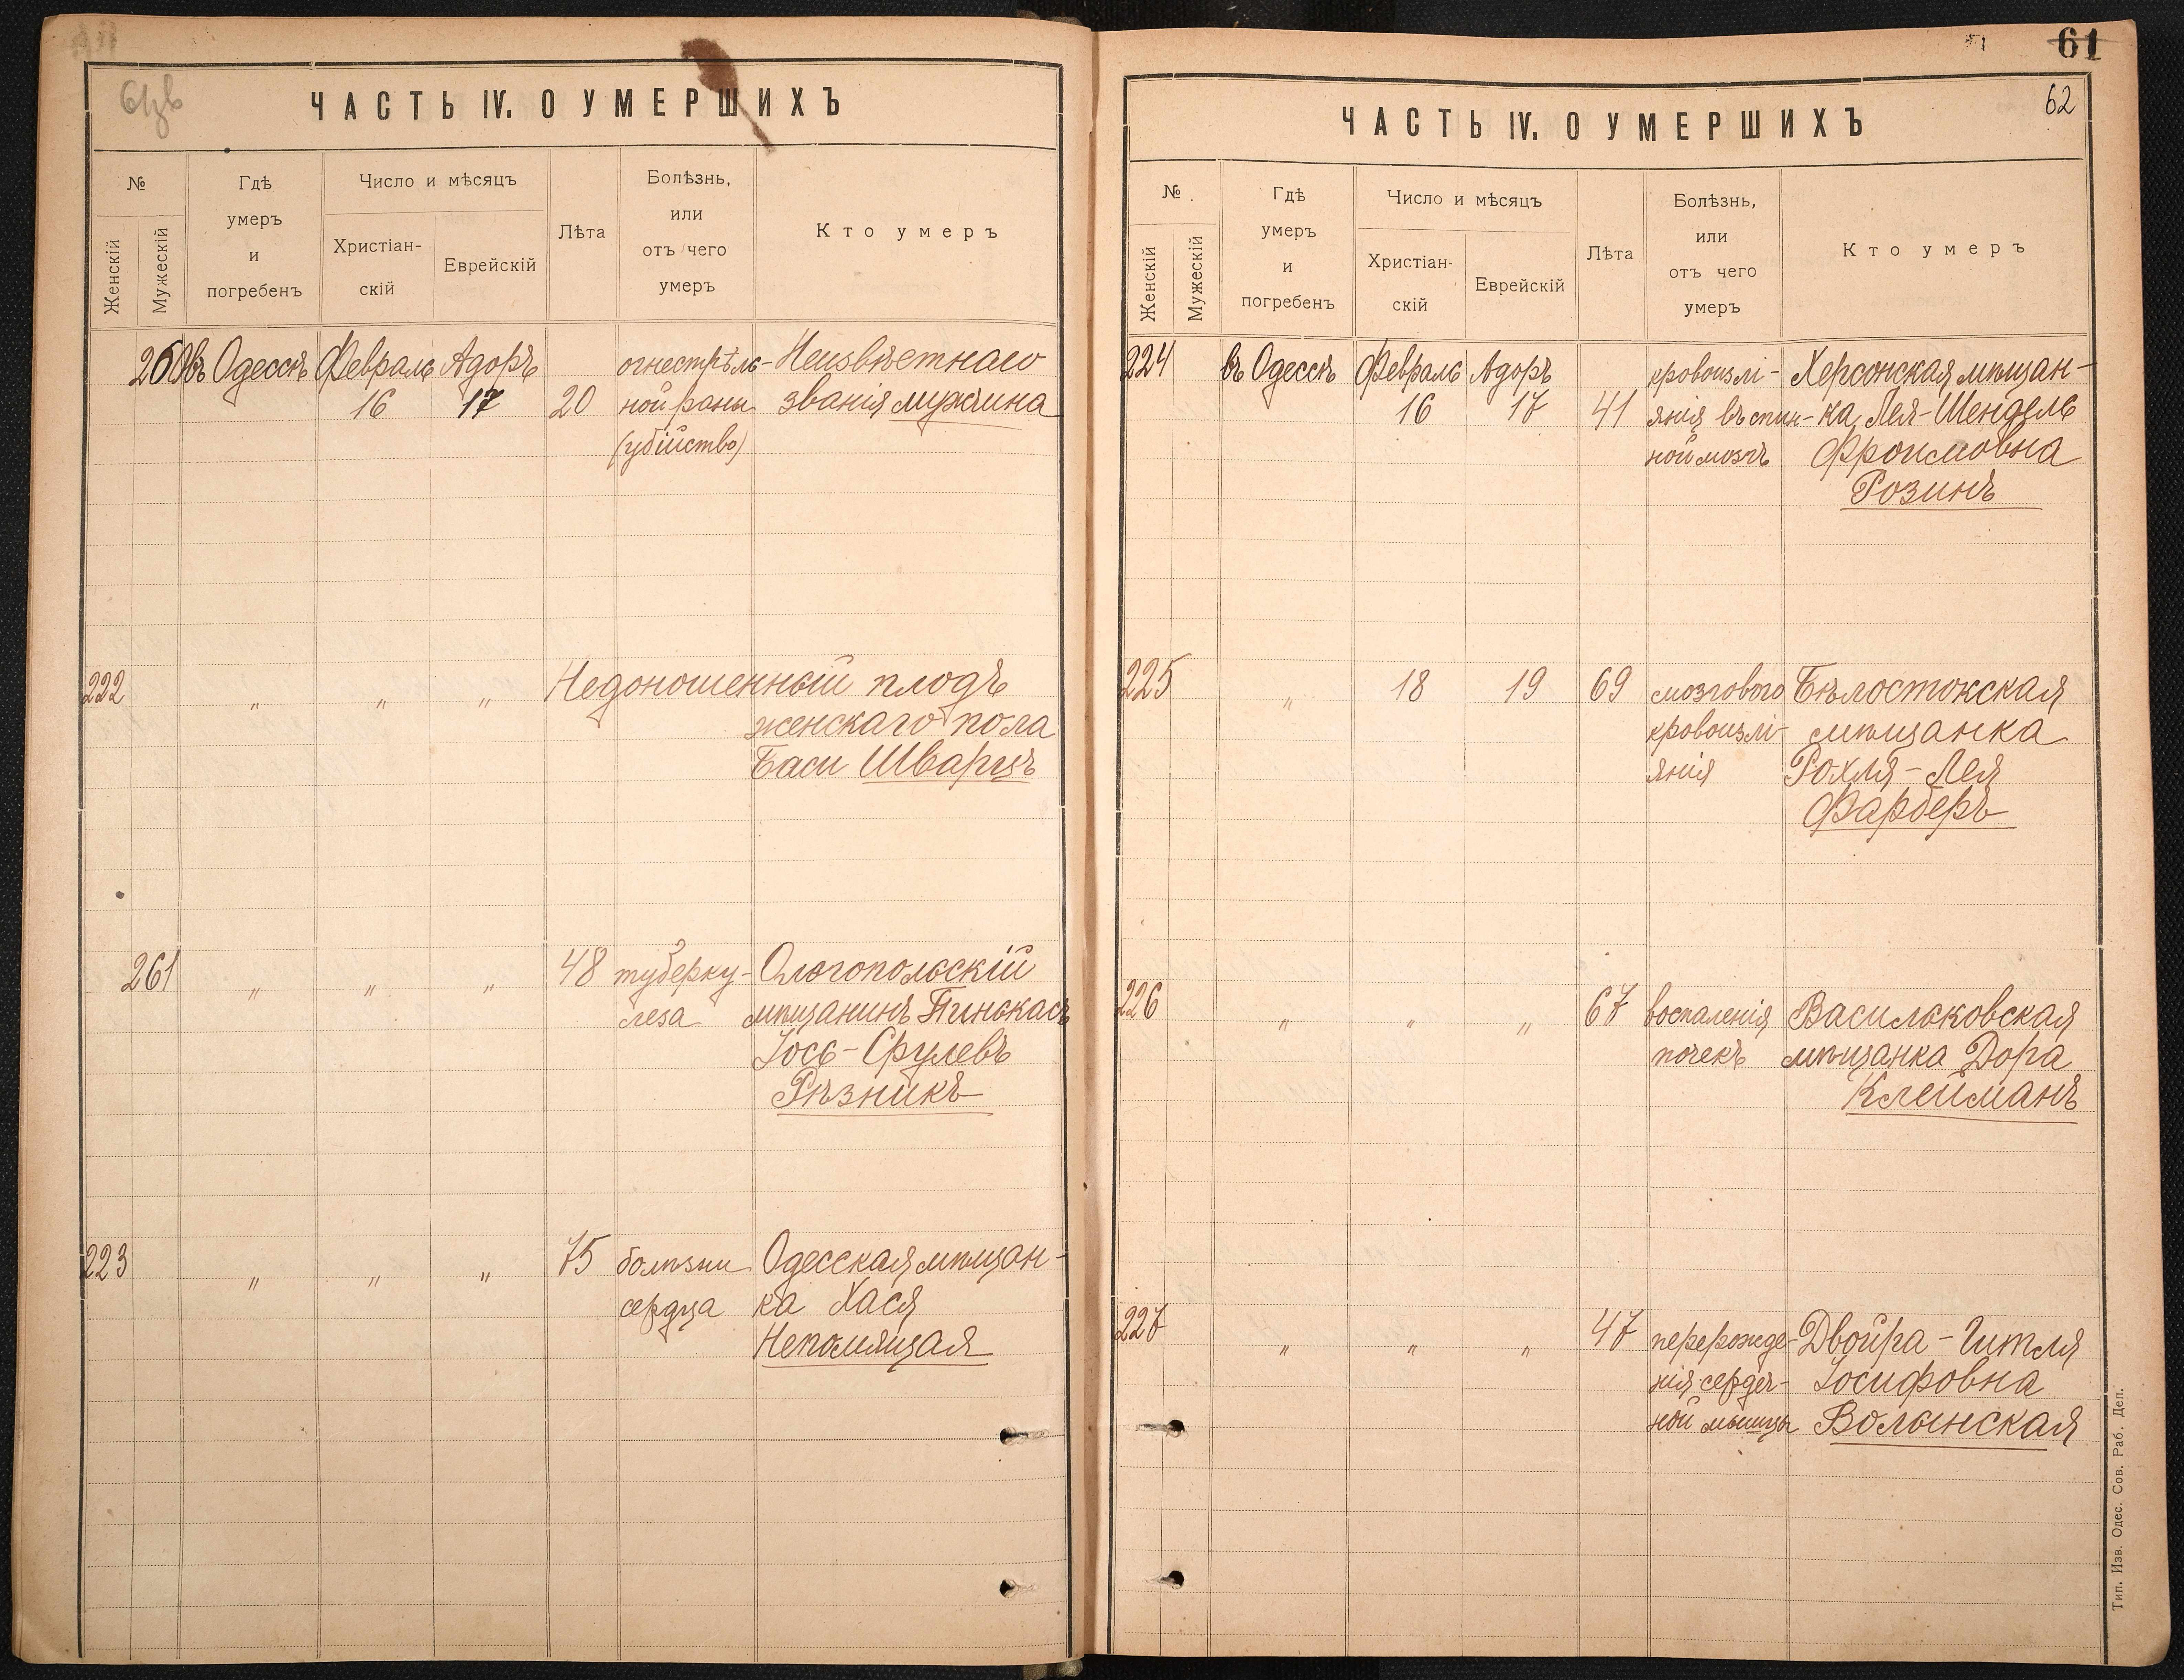 61об
ЧАСТЬ IV. О УМЕРШИХЪ
№
Женскій
Мужескій
Гдѣ
умеръ
и
погребенъ
Число и мѣсяцъ
Христіан-
скій
Еврейскій
Лѣта
Болѣзнь,
или
отъ чего
умеръ
Кто умеръ
260 въ Одессѣ Февраль Адоръ огнестрѣль- Неизвѣстнаго
16 17 20 ной раны званія мужчина
(убійство)
222 " " " Недоношенный плодъ
женскаго пола
Баси Шварцъ
261 " " " 48 туберку- Ольгопольскій
леза мѣщанинъ Пинькасъ
Іось-Срулевъ
Рѣзникъ
223 " " " 75 болѣзни Одесская мѣщан-
сердца ка Хася
Непомящая
61
62
ЧАСТЬ IV. О УМЕРШИХЪ
№
Женскій
Мужескій
Гдѣ
умеръ
и
погребенъ
Число и мѣсяцъ
Христіан-
скій
Еврейскій
Лѣта
Болѣзнь,
или
отъ чего
умеръ
Кто умеръ
224 въ Одессѣ Февраль Адоръ кровоизлі- Херсонская мѣщан-
16 17 41 янія въ спин- ка Лея-Шендель
ной мозгъ Фроимовна
Розинъ
225 " 18 19 69 мозгового Бѣлостокская
кровоизлі- мѣщанка
янія Рохля-Лея
Фарберъ
226 " " " 67 воспаленія Васильковская
почекъ мѣщанка Дора
Клейманъ
227 " " " 47 перерожде- Двойра-Гитля
нія сердеч- Іосифовна
ной мышцы Волынская
Тип. Изв. Одес. Сов. Раб. Деп.